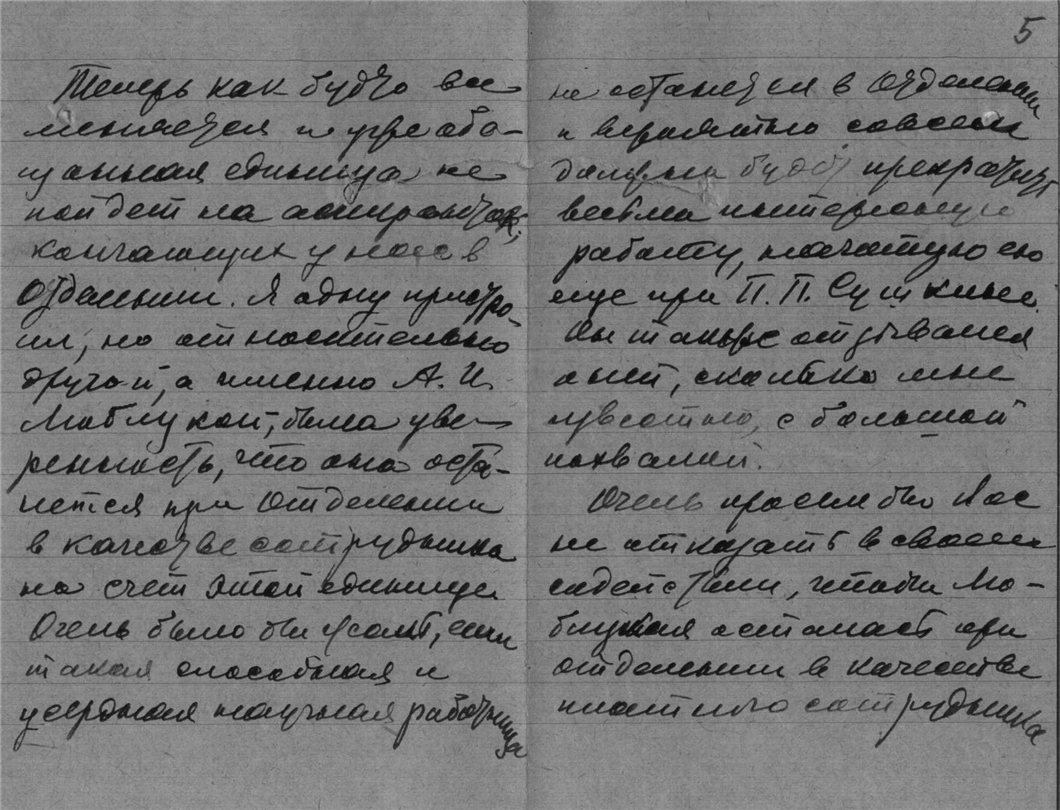 5
Теперь как будто все
меняется и уже обе-
щанная единица не
пойдет на аспиранток,
кончающих у нас в
Отделении. Я одну пристро-
ил, но относительно
другой, а именно А. И.
Моблукой, была уве-
ренность, что она оста-
нется при Отделении
в качестве сотрудника
на счет этой единицы
Очень было бы жаль, если
такая способная и
усердная научная работница
не останется в Отделении
и вероятно совсем
должна будет прекратить
весьма интересную
работу, начатую ею
еще при П. П. Сушкине.
Вы также отзывались
о ней, сколько мне
известно, с большой
похвалой.
Очень просил бы Вас
не отказать в своем
содействии, чтобы Мо-
блукая осталась при
отделении в качестве
платного сотрудника